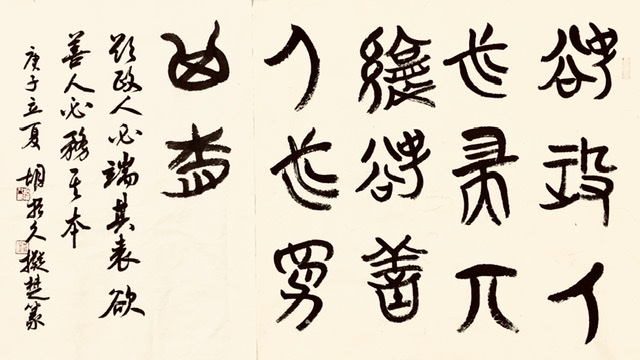 欲政人
必端丌
表欲善
人必務
丌本
欲政人必端其表欲
善人必務其本
庚子立夏 胡久擬楚篆